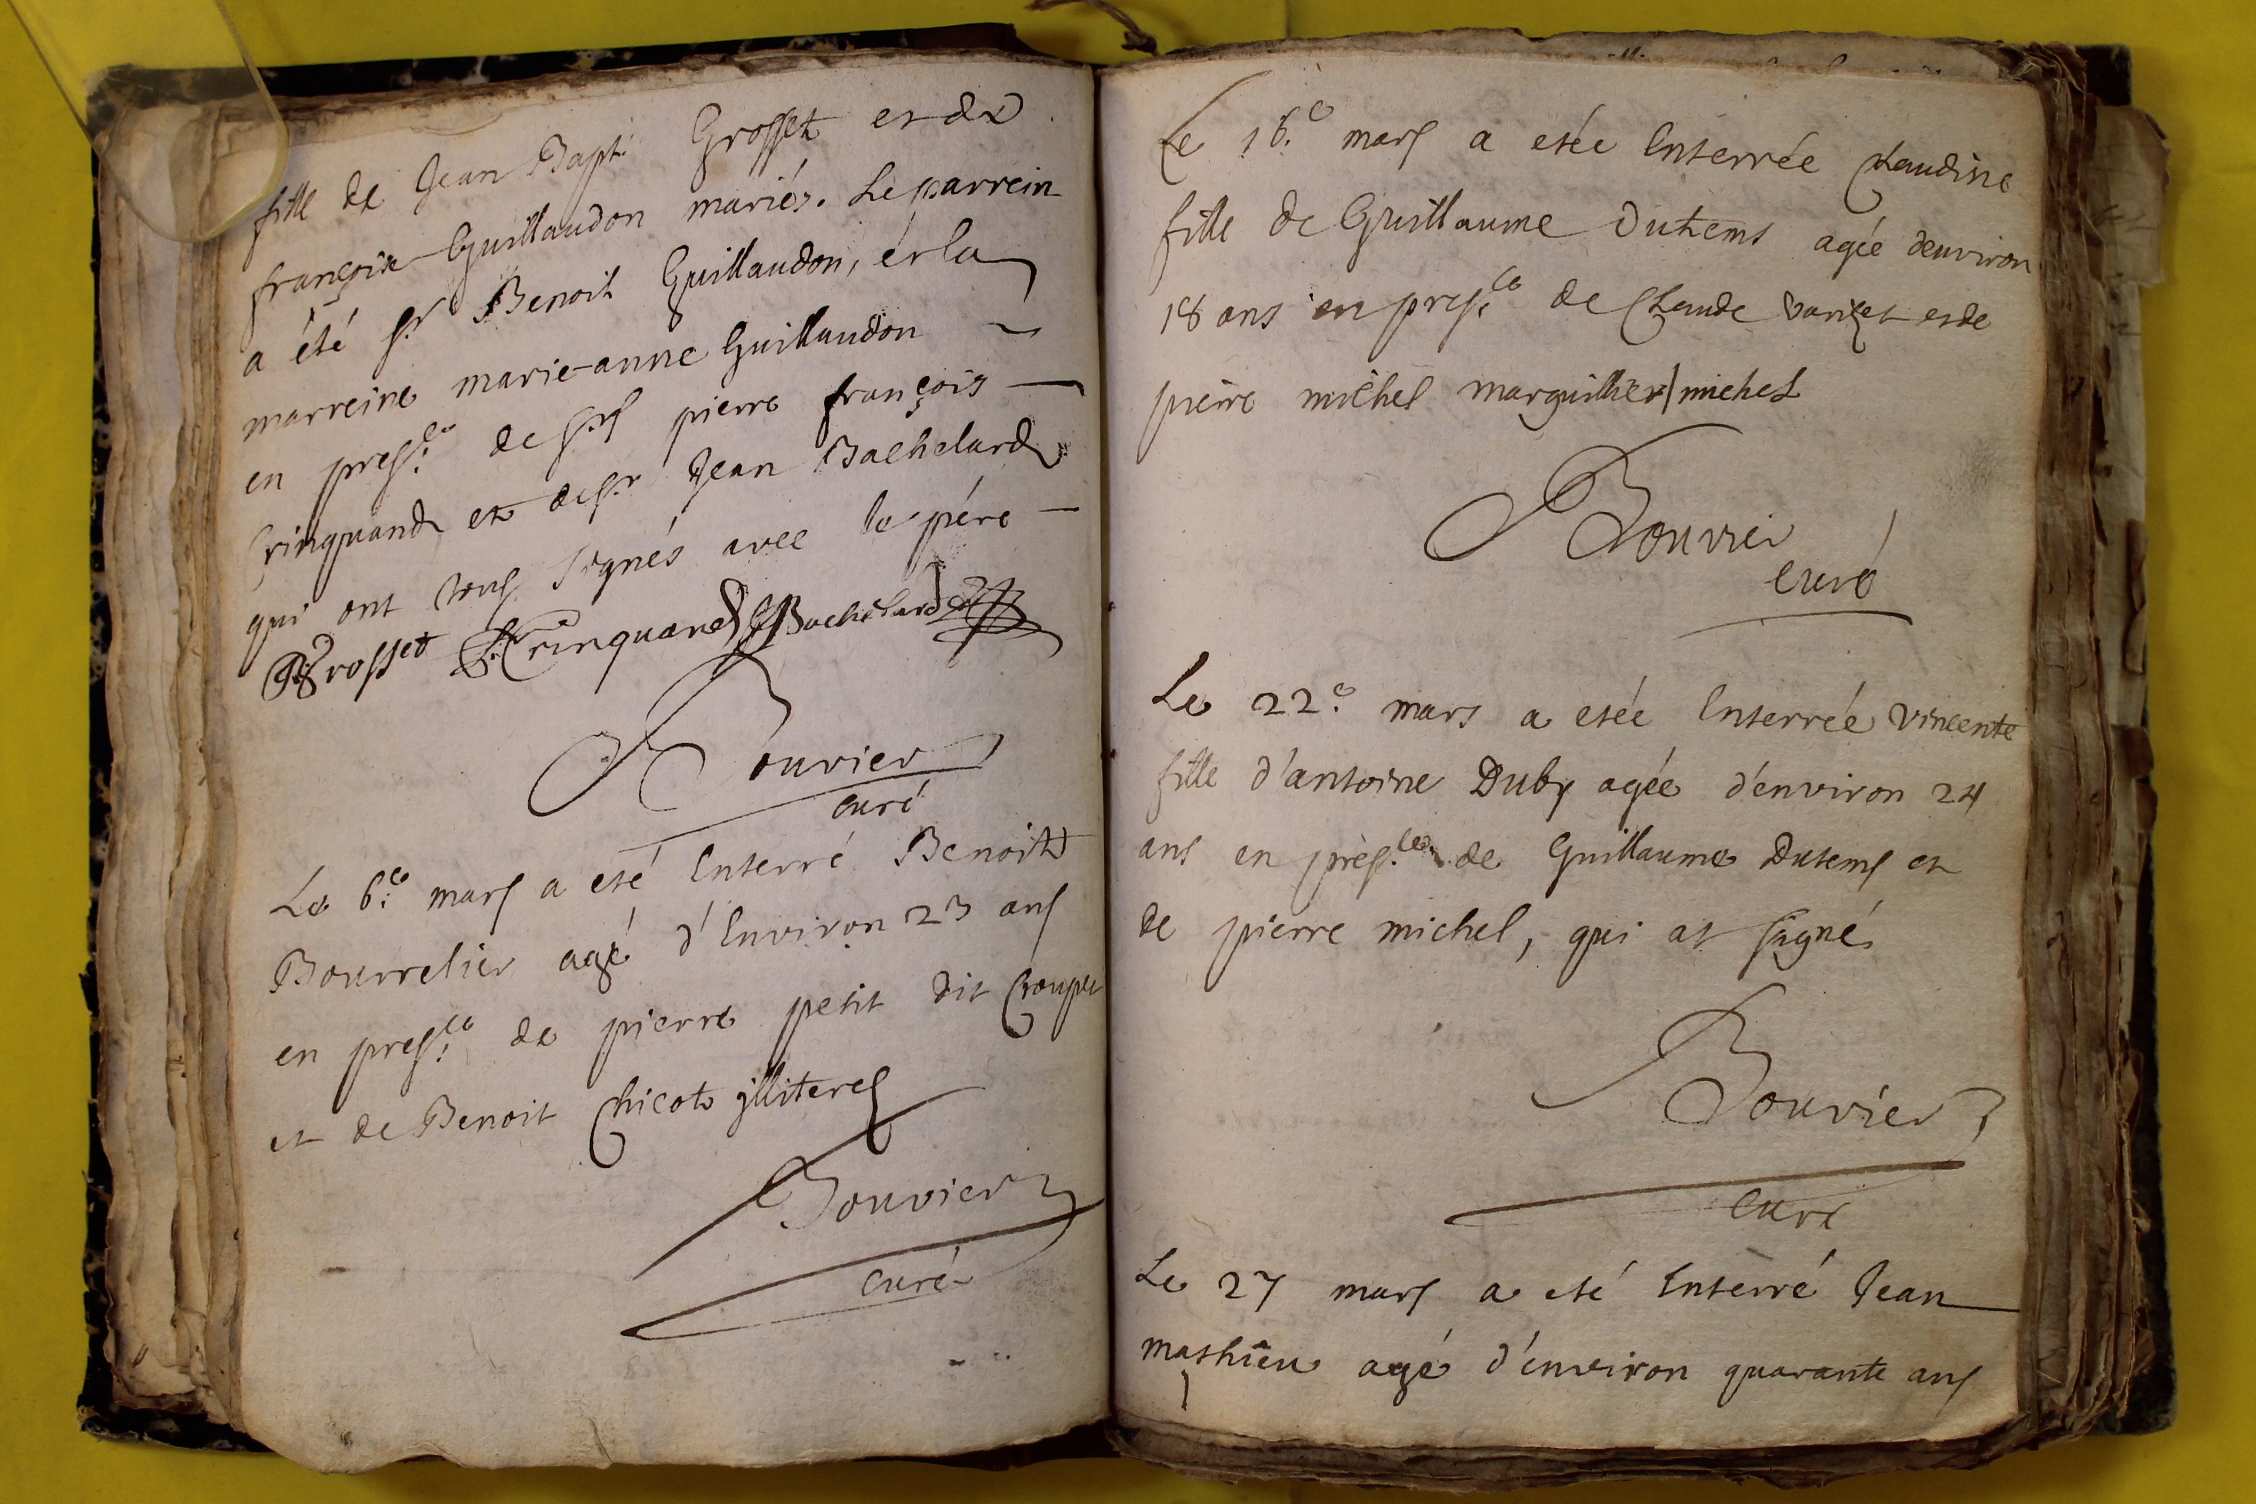 fille de Jean Bapt: Grosset et de
françoise Guillaudon mariés. Le parrein
a été sr Benoit Guillaudon, et la
marreine marie-anne Guillaudon
en presce: de srs pierre françois
Crinquand et de sr Jean Bachelard
qui ont tous signés avec le pére
Grosset Crinquand Bachelard
Bouvier
curé
Le 6e: mars a eté Enterré Benoit
Bourrelier agé d'Environ 23 ans
en presce: de pierre petit dit
et de Benoit Chicot jlliteres
Bouvier
curé
Le 16e. mars a etée Enterrée Claudine
fille de Guillaume Dutems agée denviron
18 ans en presce. de Claude et de
pierre michel marguillier michel
Bouvier
curé
Le 22e. mars a etée Enterrée vincente
fille d'antoine Duby agée d'environ 24
ans en presce. de Guillaume Dutems et
de pierre michel, qui at signé
Bouvier
curé
Le 27 mars a eté Enterré Jean
mathieu agé d'environ quarante ans